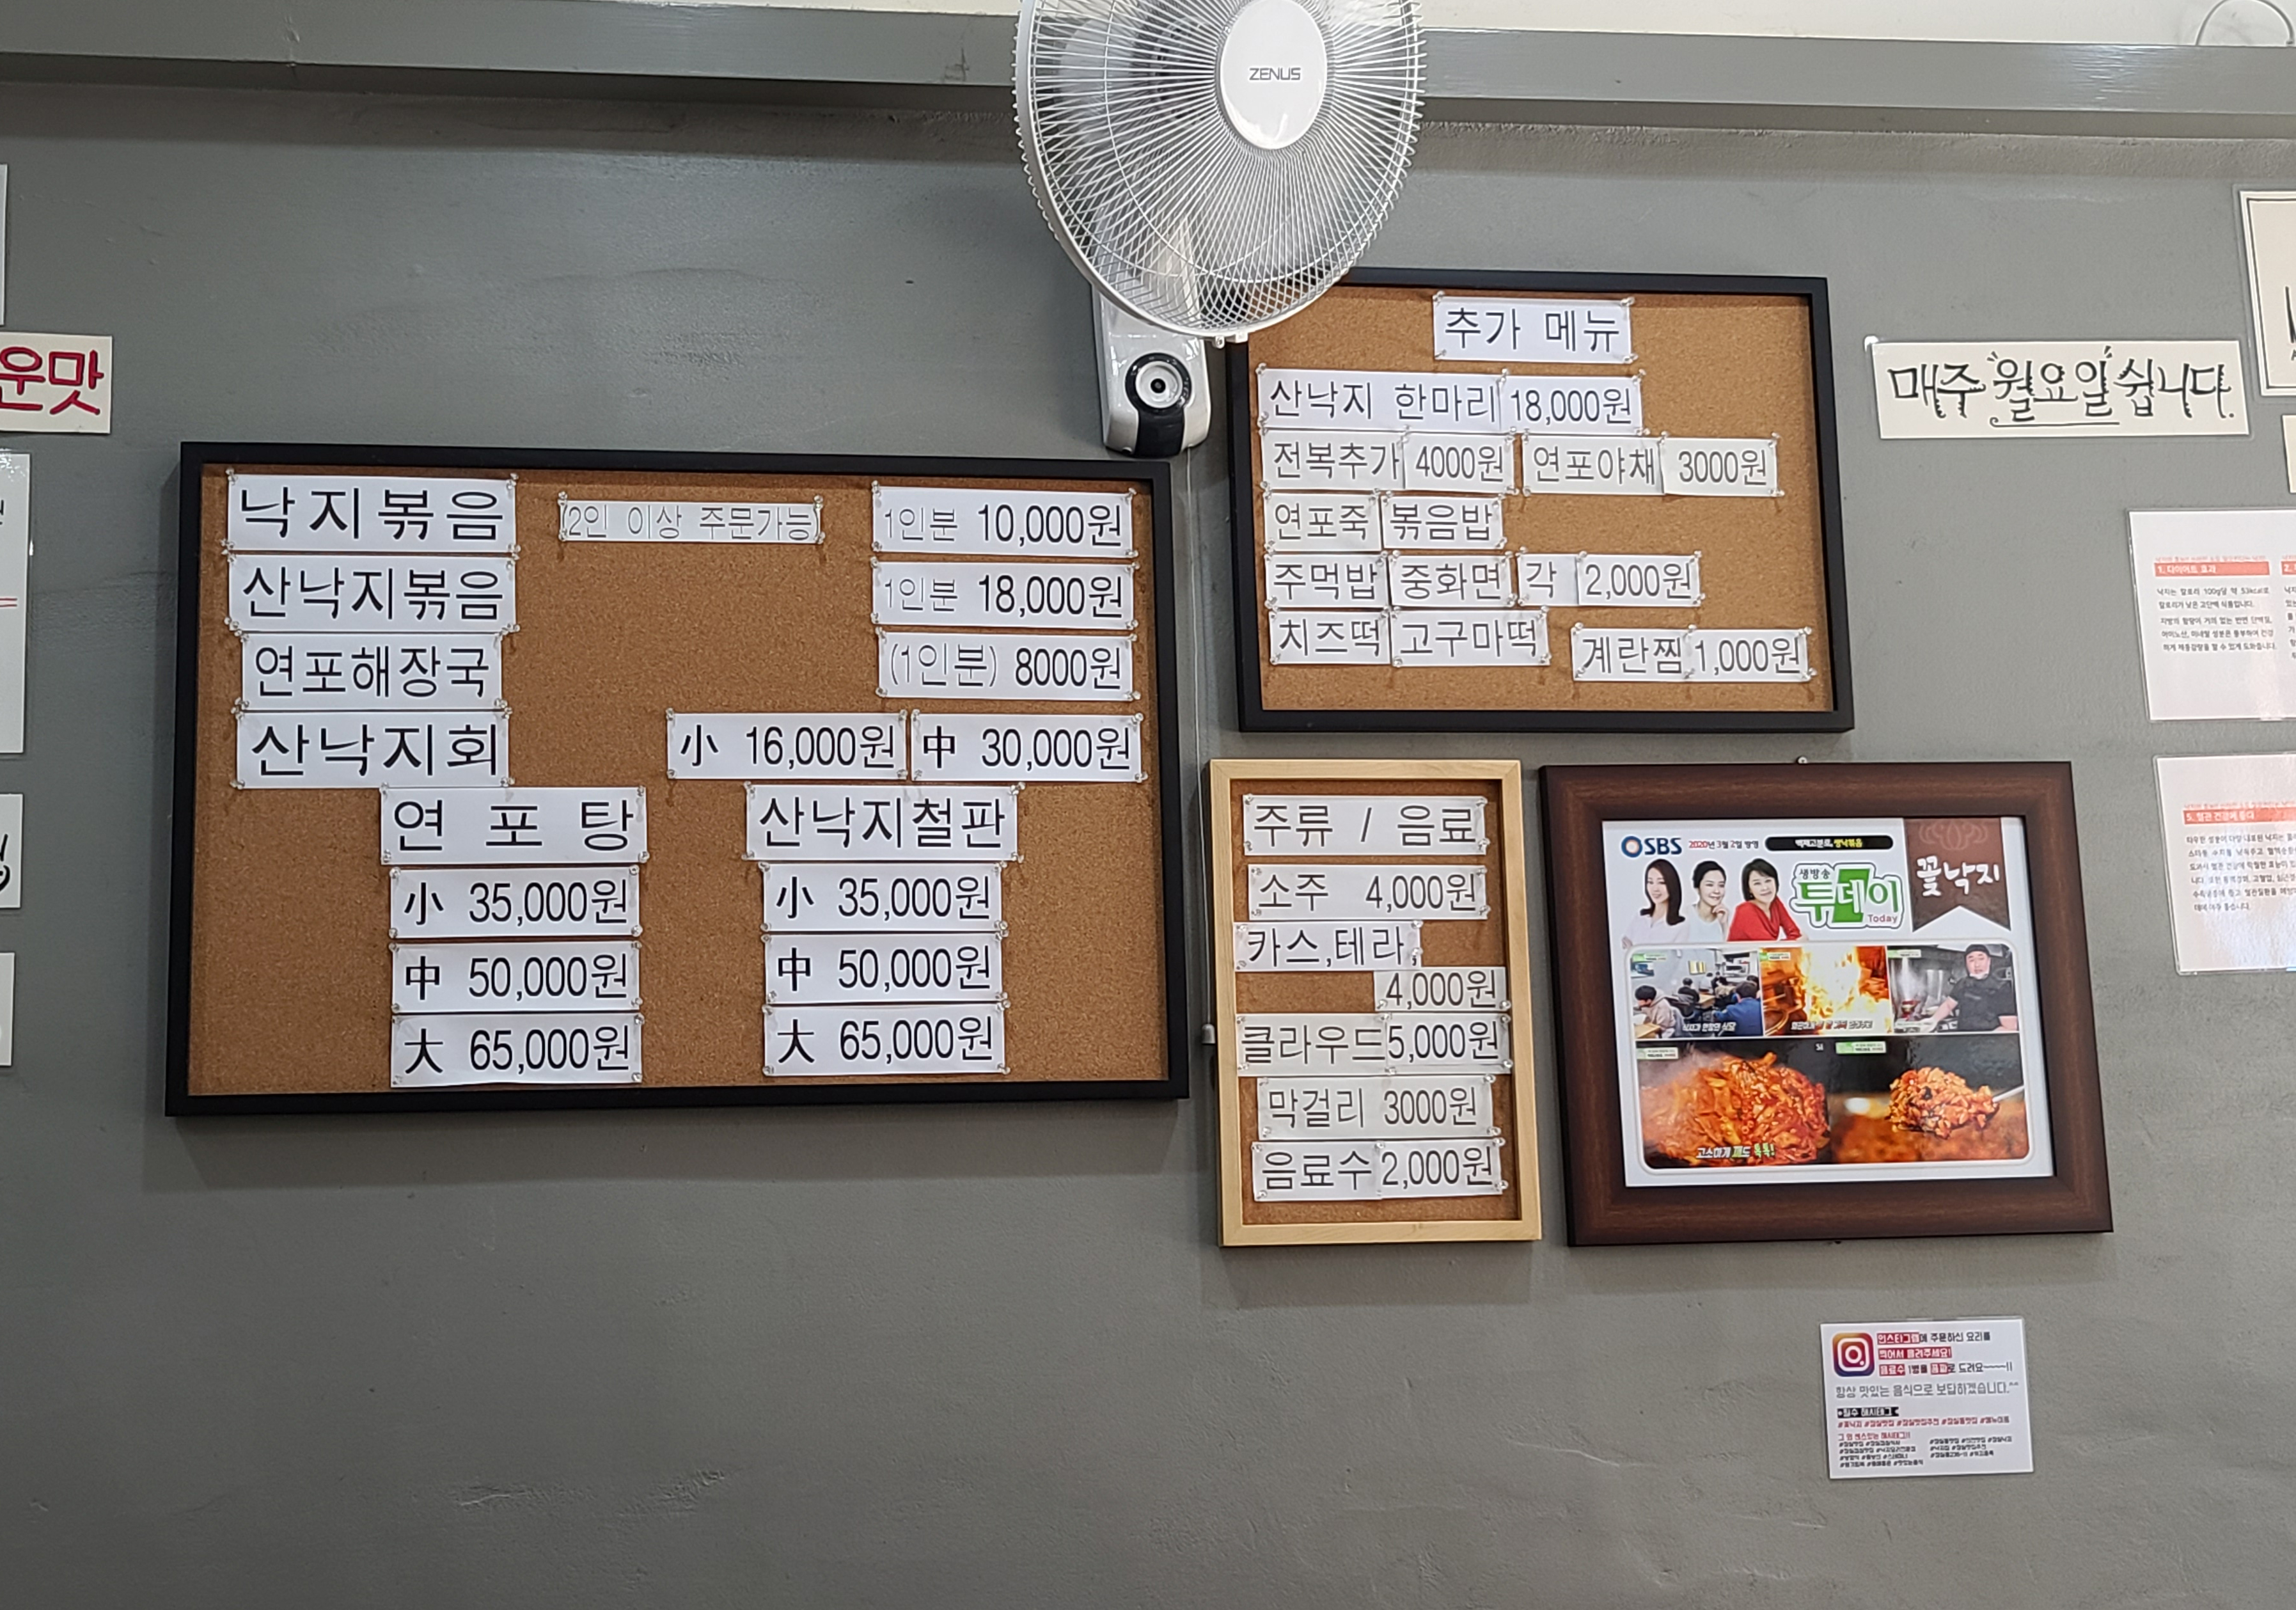 ZENUS
운맛
낙지볶음 (2인 이상 주문가능) 1인분 10,000원
산낙지볶음 1인분 18,000원
연포해장국 (1인분) 8000원
산낙지회 小 16,000원 中 30,000원
연 포 탕 산낙지철판
小 35,000원 小 35,000원
中 50,000원 中 50,000원
大 65,000원 大 65,000원
추가 메뉴
산낙지 한마리 18,000원
전복추가 4000원 연포야채 3000원
연포죽 볶음밥
주먹밥 중화면 각 2,000원
치즈떡 고구마떡 계란찜 1,000원
매주 월요일 쉽니다.
주류 / 음료
소주 4,000원
카스,테라,
4,000원
클라우드 5,000원
막걸리 3000원
음료수 2,000원
SBS 2020년 3월 2일 방영
생방송
투데이
Today
꽃낙지
고소하게 톡톡!
1. 다이어트 효과
낙지는 칼로리 100g당 약 53kcal로
칼로리가 낮은 고단백 식품입니다.
인스타그램에 주문하신 요리를
찍어서 올려주세요!
음료수 1병을 드려요~~~!!
항상 맛있는 음식으로 보답하겠습니다.^^
필수 해시태그